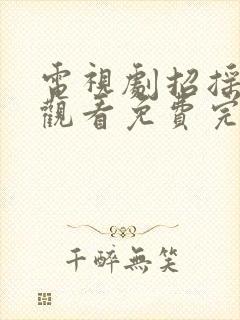 電視劇招採
觀看免費完
千醉無笑